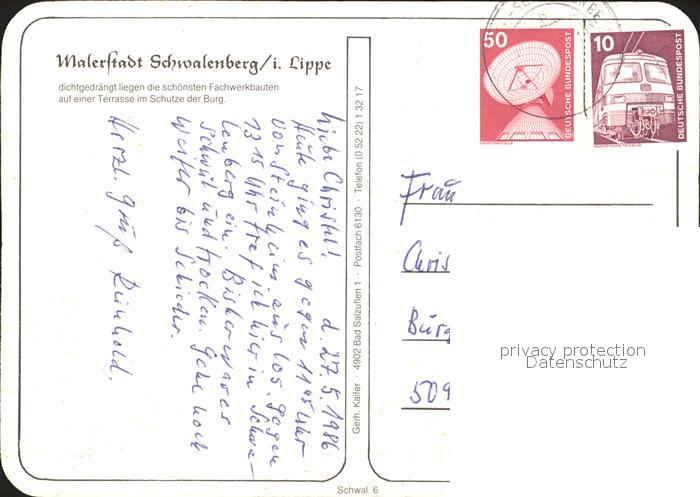 Malerstadt Schwalenberg/i. Lippe
dichtgedrängt liegen die schönsten Fachwerkbauten
auf einer Terrasse im Schutze der Burg.
Liebe Christel! d. 27.5.1986
Heute ging es gegen 11 45 Uhr
von Steinheim aus los. Gegen
13 15 Uhr traf ich hier in Schwa-
lenberg ein. Bisher war es
schwül und trocken. Gehe noch
weiter bis Schieder.
Herzl. Gruß Reinhold.
Gerh. Kaifer · 4902 Bad Salzuflen 1 · Postfach 6130 · Telefon (0 52 22) 1 32 17
50
DEUTSCHE BUNDESPOST
10
DEUTSCHE BUNDESPOST
Frau
Chris
Burg
509
privacy protection
Datenschutz
Schwal. 6